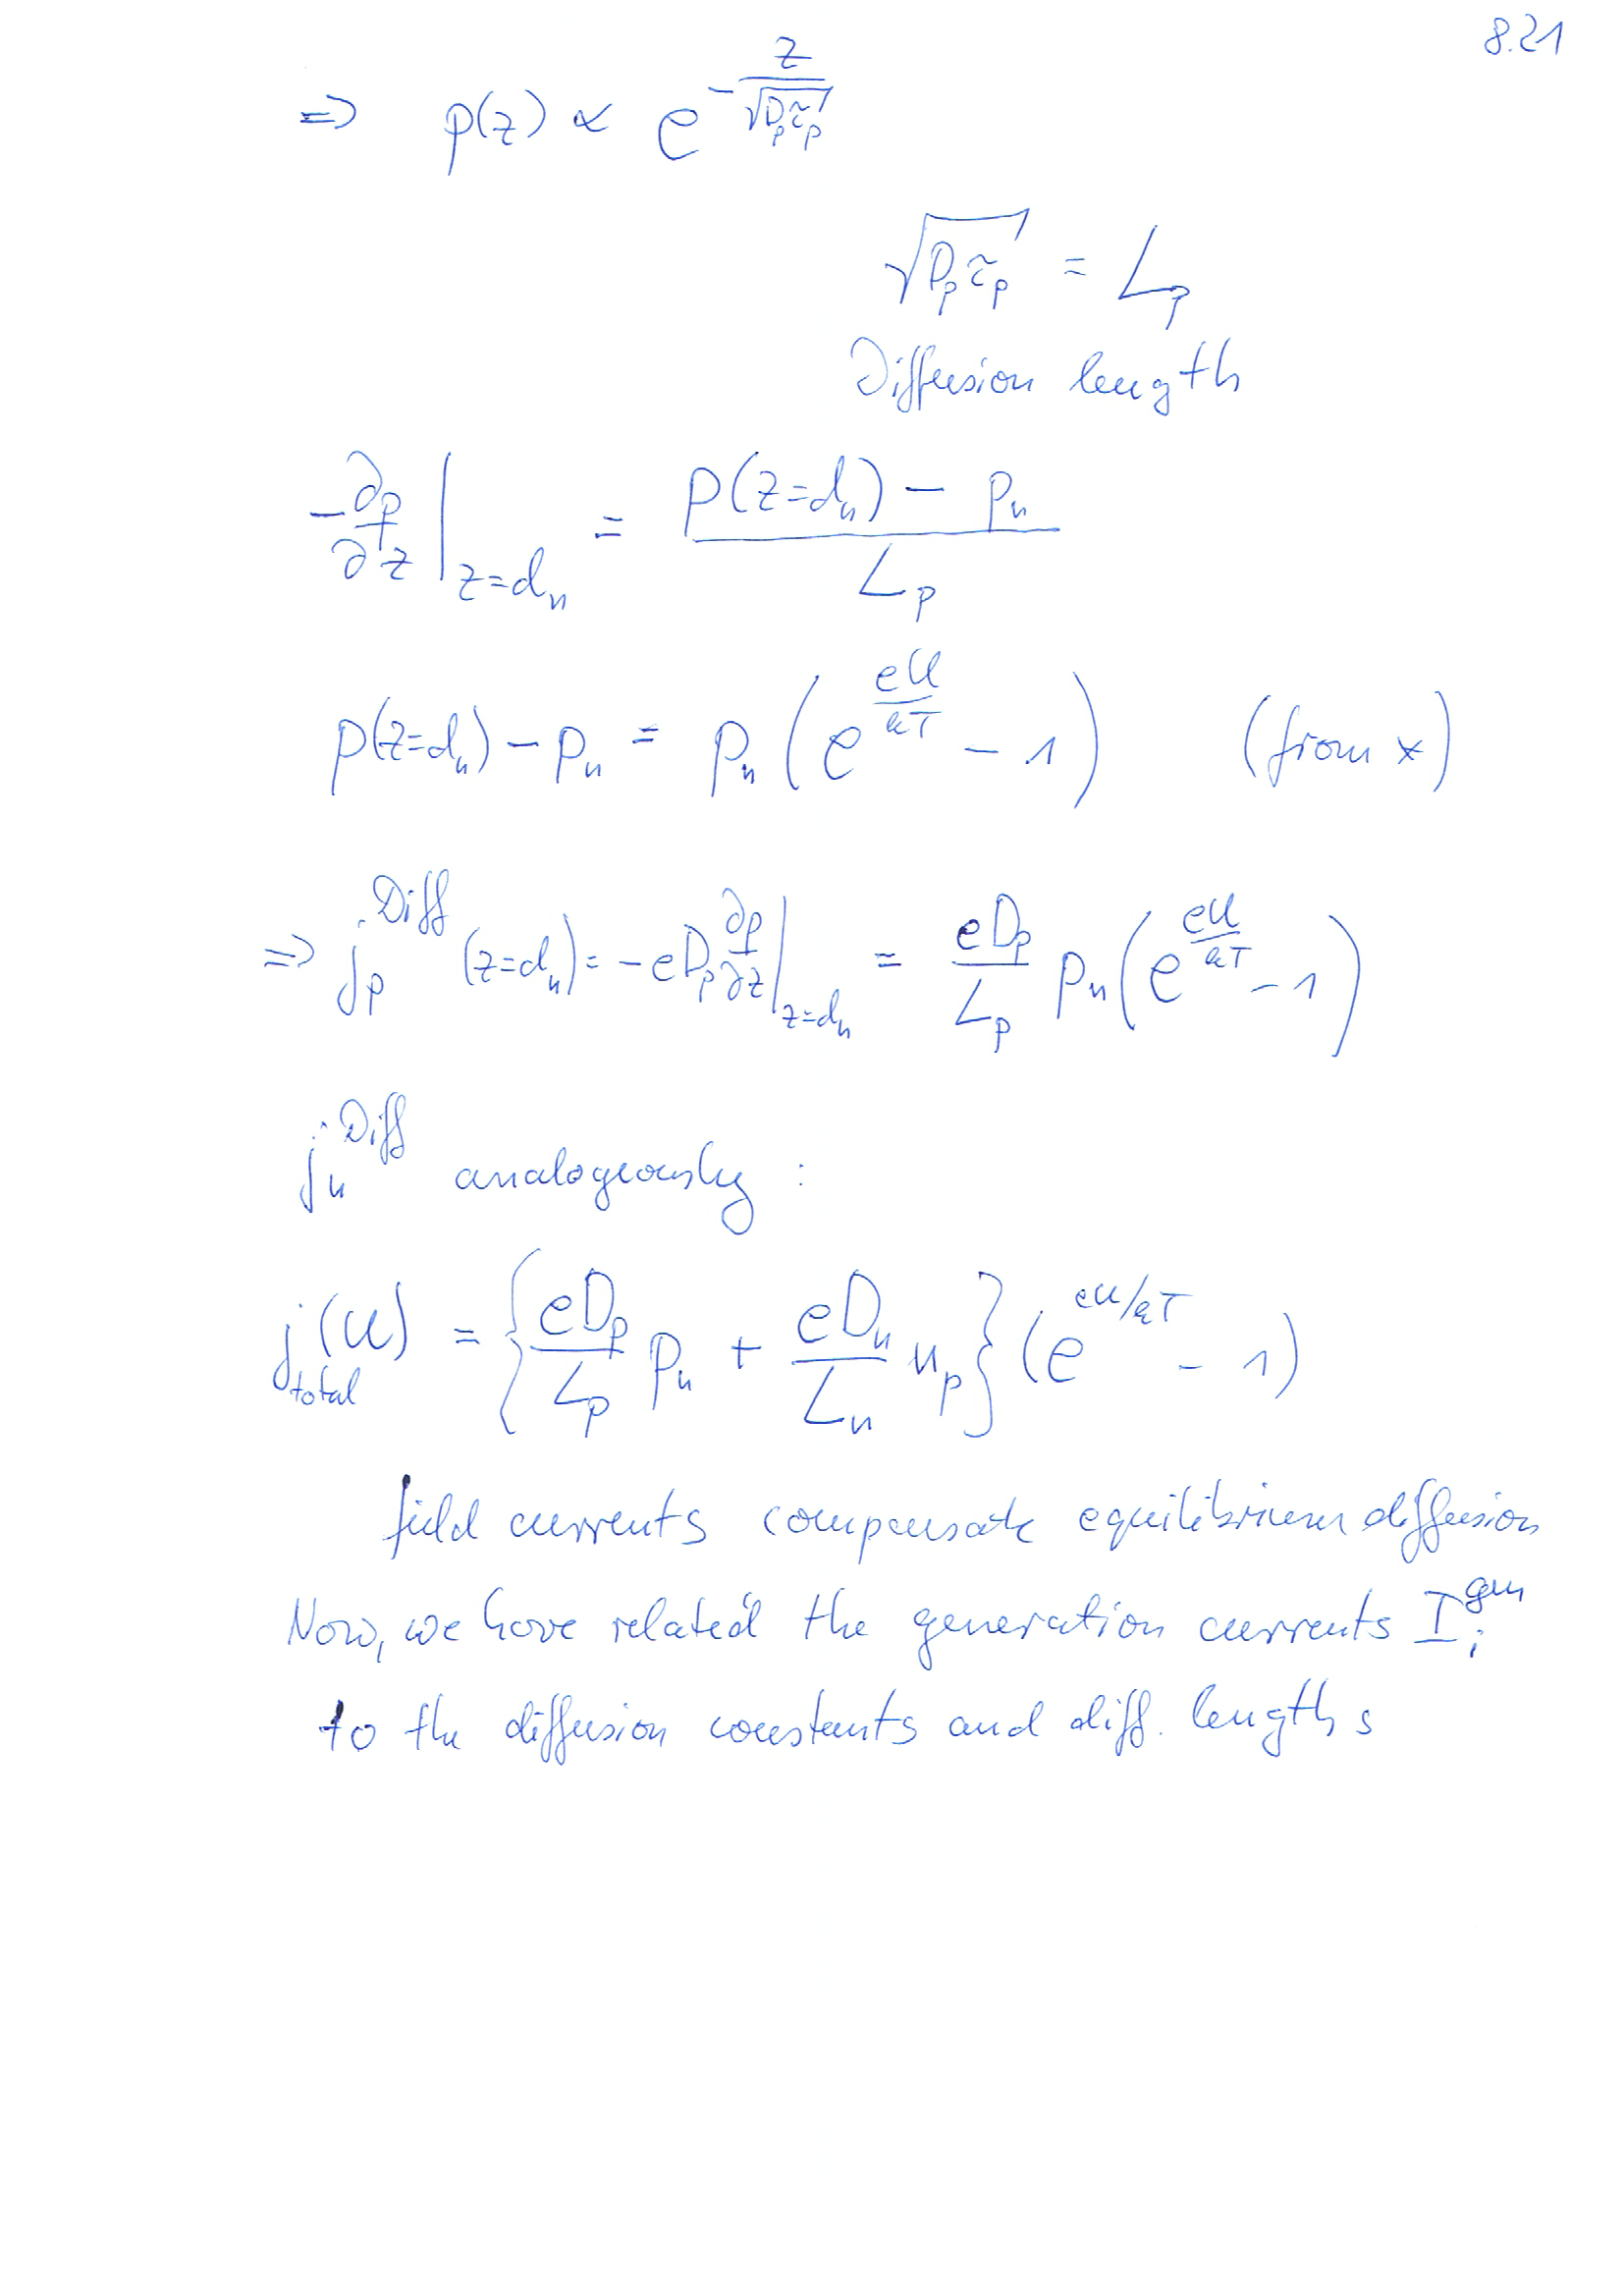 8.21
⇒ p(z) ∝ e^{-z/√(D_p τ_p)}
√(D_p τ_p) = L_p
Diffusion length
-∂p/∂z |_{z=d_n} = (p(z=d_n) - p_n)/L_p
p(z=d_n) - p_n = p_n (e^{eU/kT} - 1) (from x)
⇒ j_p^{Diff} (z=d_n) = -eD_p ∂p/∂z |_{z=d_n} = eD_p/L_p p_n (e^{eU/kT} - 1)
j_n^{Diff} analogeously :
j_{total}(U) = {eD_p/L_p p_n + eD_n/L_n n_p} (e^{eU/kT} - 1)
field currents compensate equilibrium diffusion
Now, we have related the generation currents I_i^{gen}
to the diffusion constants and diff. lengths